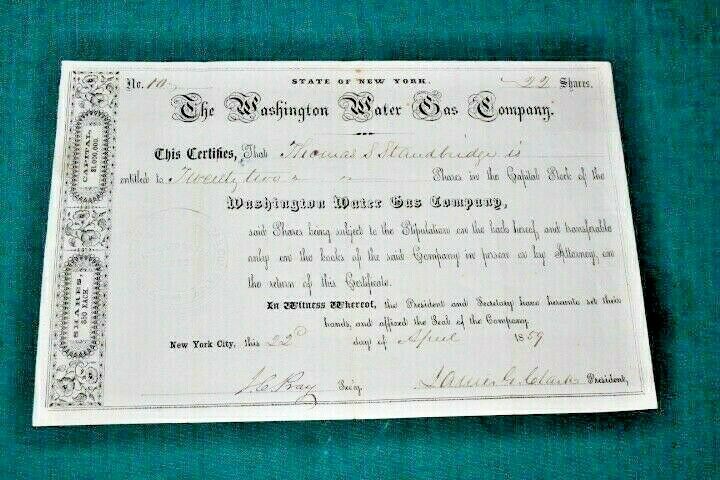 No. 10 STATE OF NEW YORK. 22 Shares.
The Washington Water Gas Company.
This Certifies, That Thomas S Standbridge is
entitled to Twenty two Shares in the Capital Stock of the
Washington Water Gas Company,
said Shares being subject to the Stipulation on the back hereof, and transferable
only on the books of the said Company in person or by Attorney, on
the return of this Certificate.
In Witness Whereof, the President and Secretary have hereunto set their
hands, and affixed the Seal of the Company.
New York City, this 22d day of April 1859
J. C. Pray Sec'y. James G. Clark President,
CAPITAL,
$1,000,000.
SHARES,
$50 EACH.